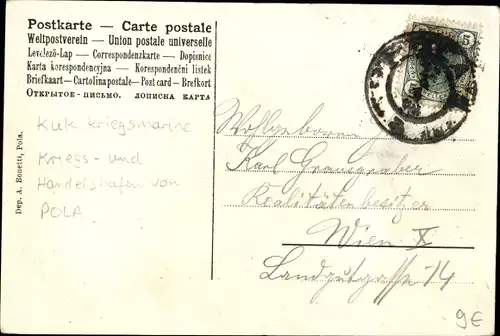 Postkarte — Carte postale
Weltpostverein — Union postale universelle
Levelező-Lap — Correspondenzkarte — Dopisnice
Karta korespondencyjna — Korespondenční lístek
Briefkaart — Cartolina postale — Post card — Brefkort
ОТКРЫТОЕ - ПИСЬМО. ДОПИСНА КАРТА
5
KuK Kriegsmarine
Kriegs- und
Handelshafen von
POLA
Dep. A. Bonetti, Pola.
Wohlgeboren
Karl Grausgruber
Realitätenbesitzer
Wien X
Landgutgasse 14
9€